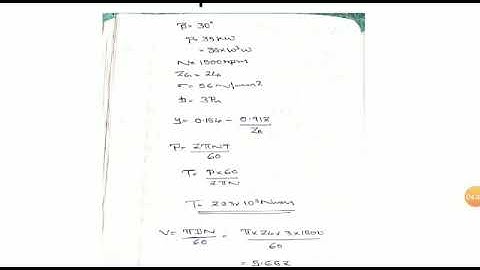 β = 30°
P = 35 KW
= 35×10³W
N = 1500 rpm
= 24
σ = 56 N/mm²
b = 3Pn
y = 0.154 - 0.912
P = 2πNT
60
T = P×60
2πN
T = 223×10³ Nmm
V = πDN / 60 = π×24×3×1500 / 60
= 5.65